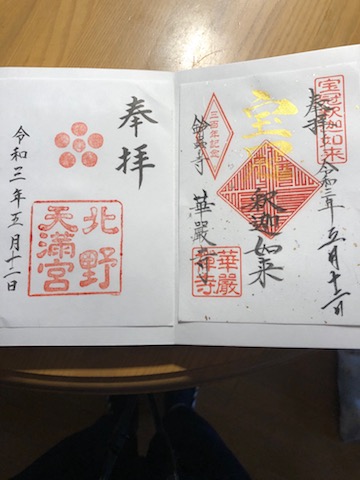 宝冠釈迦如来
奉拝
令和三年五月十二日
宝
釈迦如来
三百年記念
鈴虫寺
華嚴寺
華嚴
禅寺
奉拝
北野
天満宮
令和三年五月十二日